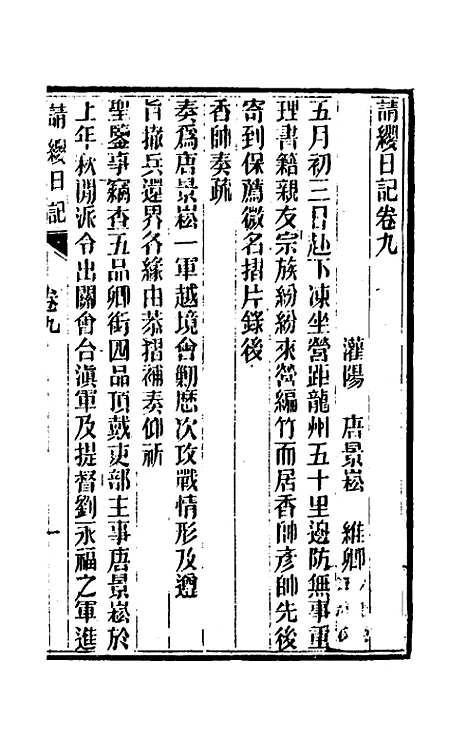 請纓日記卷九
灌陽　唐景崧　維卿
五月初三日赴下凍坐營距龍州五十里邊防無事重
理書籍親友宗族紛紛來營編竹而居香帥彥帥先後
寄到保薦微名摺片錄後
香帥奏疏
奏爲唐景崧一軍越境會勦歷次攻戰情形及遵
旨撤兵還界各緣由恭摺補奏仰祈
聖鑒事竊查五品卿銜四品頂戴吏部主事唐景崧於
上年秋間派令出關會合滇軍及提督劉永福之軍進
請纓日記
卷九
一